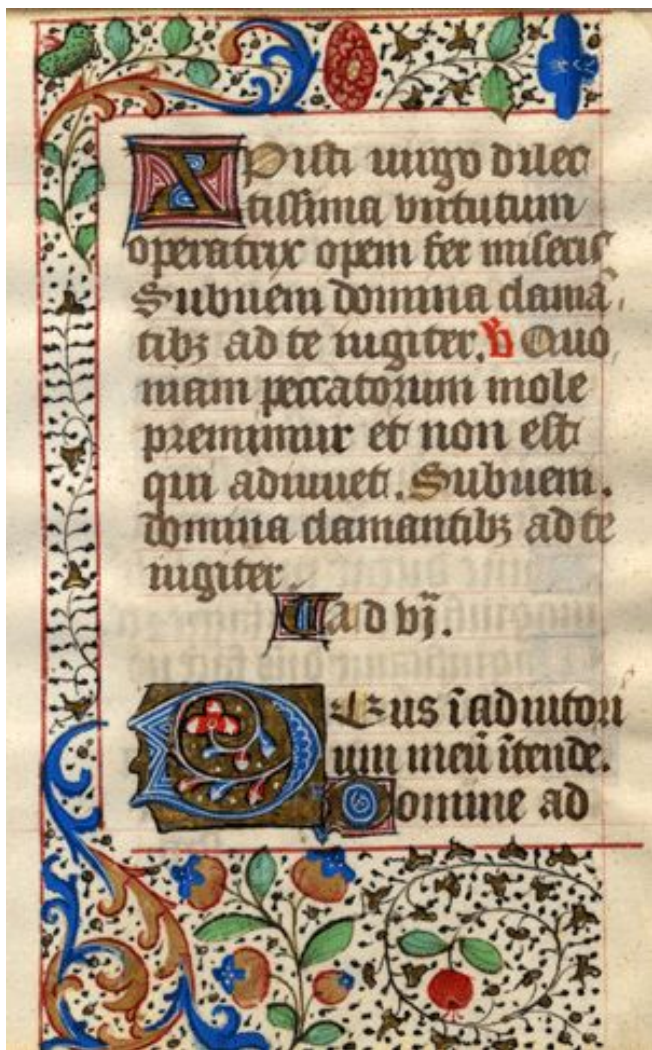 Xpisti uirgo dilec
tissima virtutum
operatrix opem fer miseris
Subueni domina clamā
tibꝫ ad te iugiter. ℟ Quo
niam peccatorum mole
premimur et non est
qui adiuuet. Subueni.
domina clamantibꝫ ad te
iugiter.
ad vj̄.
Deus ī adiutori
um meū ītende.
Domine ad